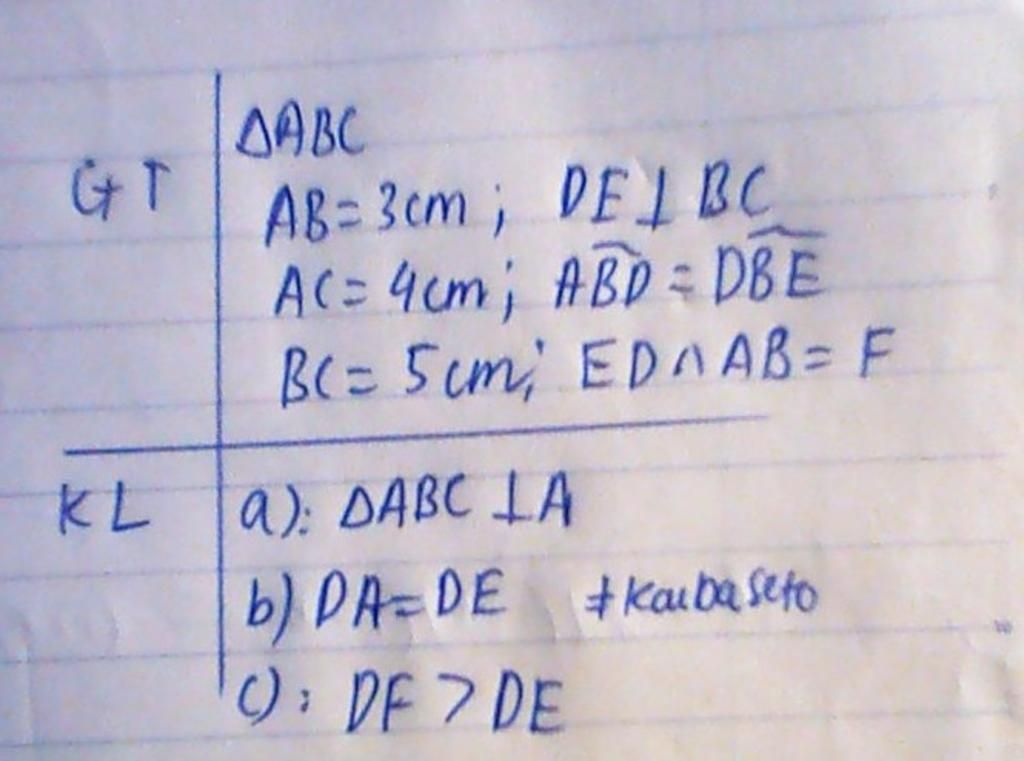 ΔABC
GT AB = 3cm ; DE ⊥ BC
AC = 4cm ; ABD = DBE
BC = 5cm ; ED ∩ AB = F
KL a): ΔABC ⊥ A
b) DA = DE #Kaibaseto
c): DF > DE